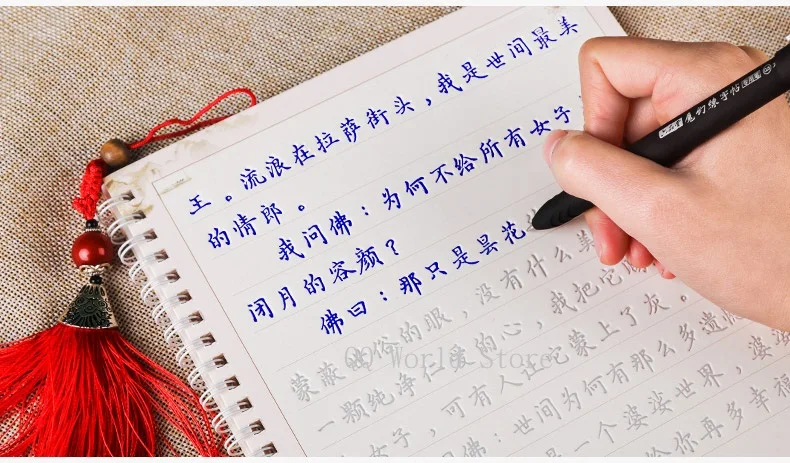 王。流浪在拉萨街头，我是世间最美
的情郎。
我问佛：为何不给所有女子
闭月的容颜？
佛曰：那只是昙花
蒙蔽世俗的眼，没有什么美
一颗纯净仁爱的心，我把它
女子，可有人让它蒙上了灰。
佛：世间为何有那么多遗
是一个婆娑世界，婆
给你再多幸福
QQ World Store